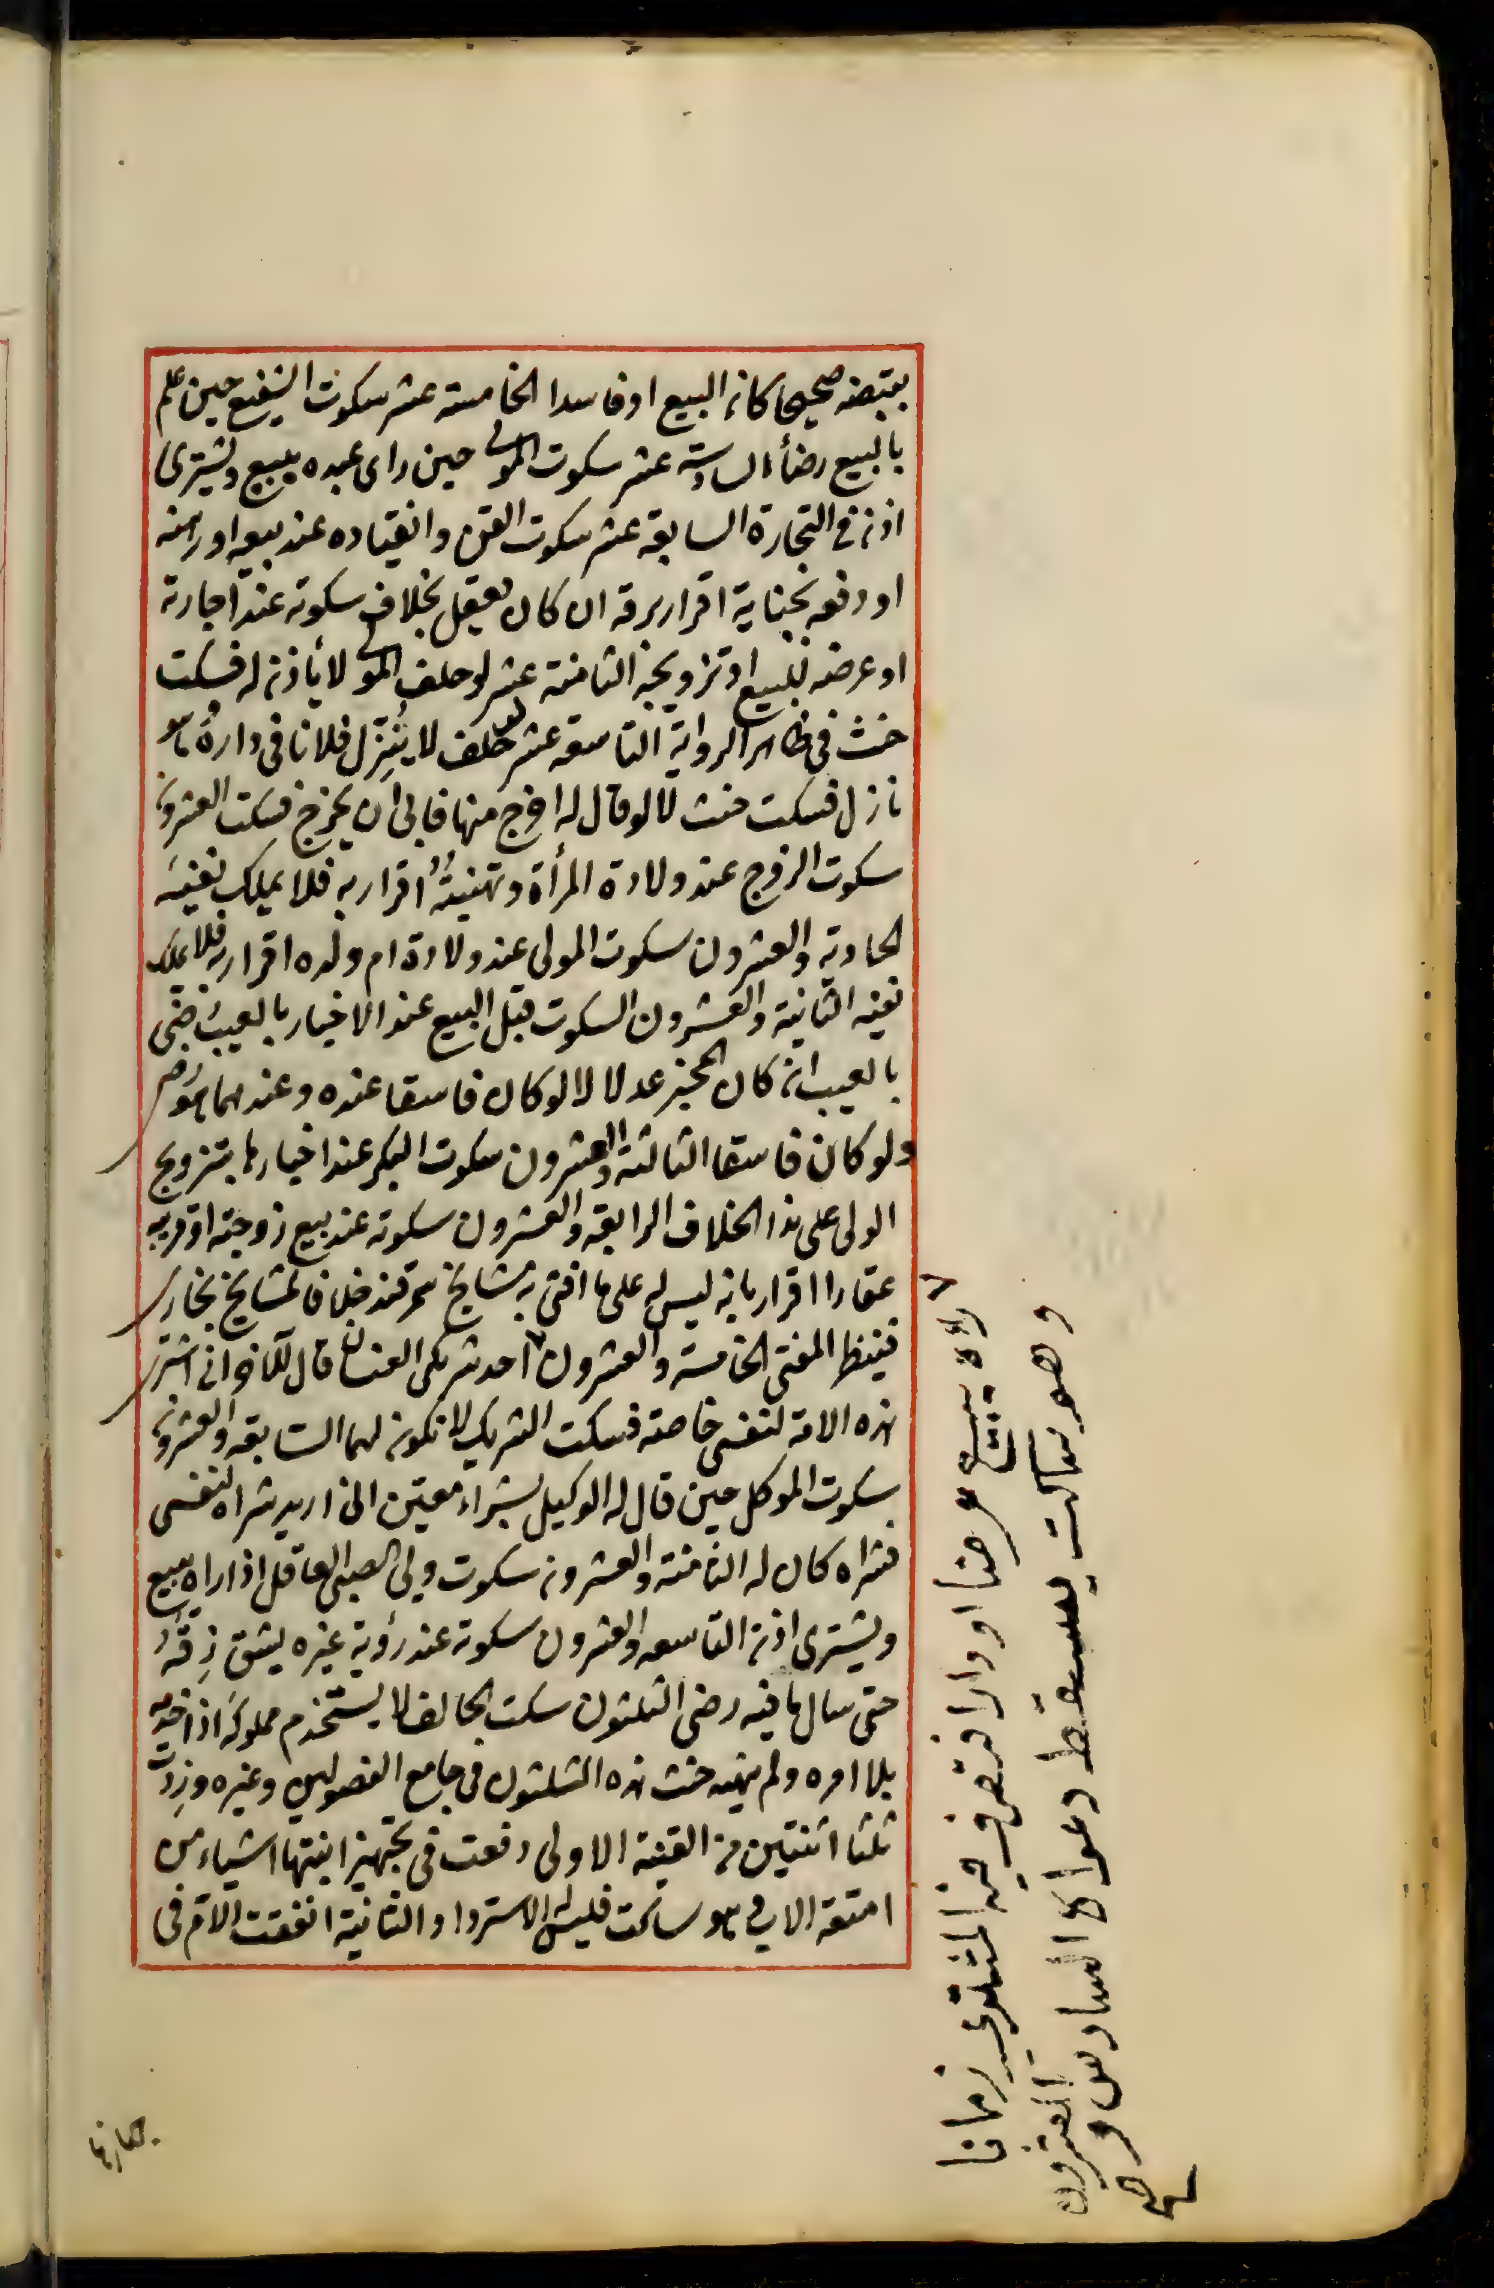 بقبضه صحيحا كان البيع او فاسدا الخامسة عشر سكوت الشفيع حين علم
بالبيع رضأ السادسة عشر سكوت المولى حين راى عبده يبيع ويشترى
اذن في التجارة السابعة عشر سكوت القن وانقياده عند بيعه او رهنه
او دفعه بجناية اقرار برقه ان كان يعقل بخلاف سكوته عند اجارته
او عرضه للبيع او تزويجه الثامنة عشر لو حلف المولى لا يأذن له فسكت
حنث في ظاهر الرواية التاسعة عشر لو حلف لا يُنزِل فلانا في داره وهو
نازل فسكت حنث لا لو قال له اخرج منها فابى ان يخرج فسكت العشرون
سكوت الزوج عند ولادة المرأة وتهنيته اقرار به فلا يملك نفيه
الحادية والعشرون سكوت المولى عند ولادة ام ولده اقرار به فلا يملك
نفيه الثانية والعشرون السكوت قبل البيع عند الاخبار بالعيب رضى
بالعيب ان كان المخبر عدلا لا لو كان فاسقا عنده وعندهما هو رضى
ولو كان فاسقا الثالثة والعشرون سكوت البكر عند اخبارها بتزويج
الولى على هذا الخلاف الرابعة والعشرون سكوته عند بيع زوجته او قريبه
عقارا اقرار بانه ليس له على ما افتى به مشايخ سمرقند خلافا لمشايخ بخارى
فينظر المفتى الخامسة والعشرون احد شريكى العنان قال للآخر انى اشترى
هذه الامة لنفسى خاصة فسكت الشريك لا تكون لهما السابعة والعشرون
سكوت الموكل حين قال له الوكيل بشراء معين انى اريد شراه لنفسى
فشراه كان له الثامنة والعشرون سكوت ولى الصبى العاقل اذا راه يبيع
ويشترى اذن التاسعه والعشرون سكوته عند رؤية غيره يشق زِقَّهُ
حتى سال ما فيه رضى الثلثون سكت الحالف لا يستخدم مملوكه اذا خدمه
بلا امره ولم ينهه حنث هذه الثلثون في جامع الفصولين وغيره وزدت
ثلثا اثنتين من القنية الاولى دفعت في تجهيز ابنتها اشياء من
امتعة الاب وهو ساكت فليس له الاسترداد الثانية انفقت الام في
راه يبيع عرضا او دارا فتصرف فيه المشترى زمانا
وهو ساكت يسقط دعواه السادس والعشرون
صح